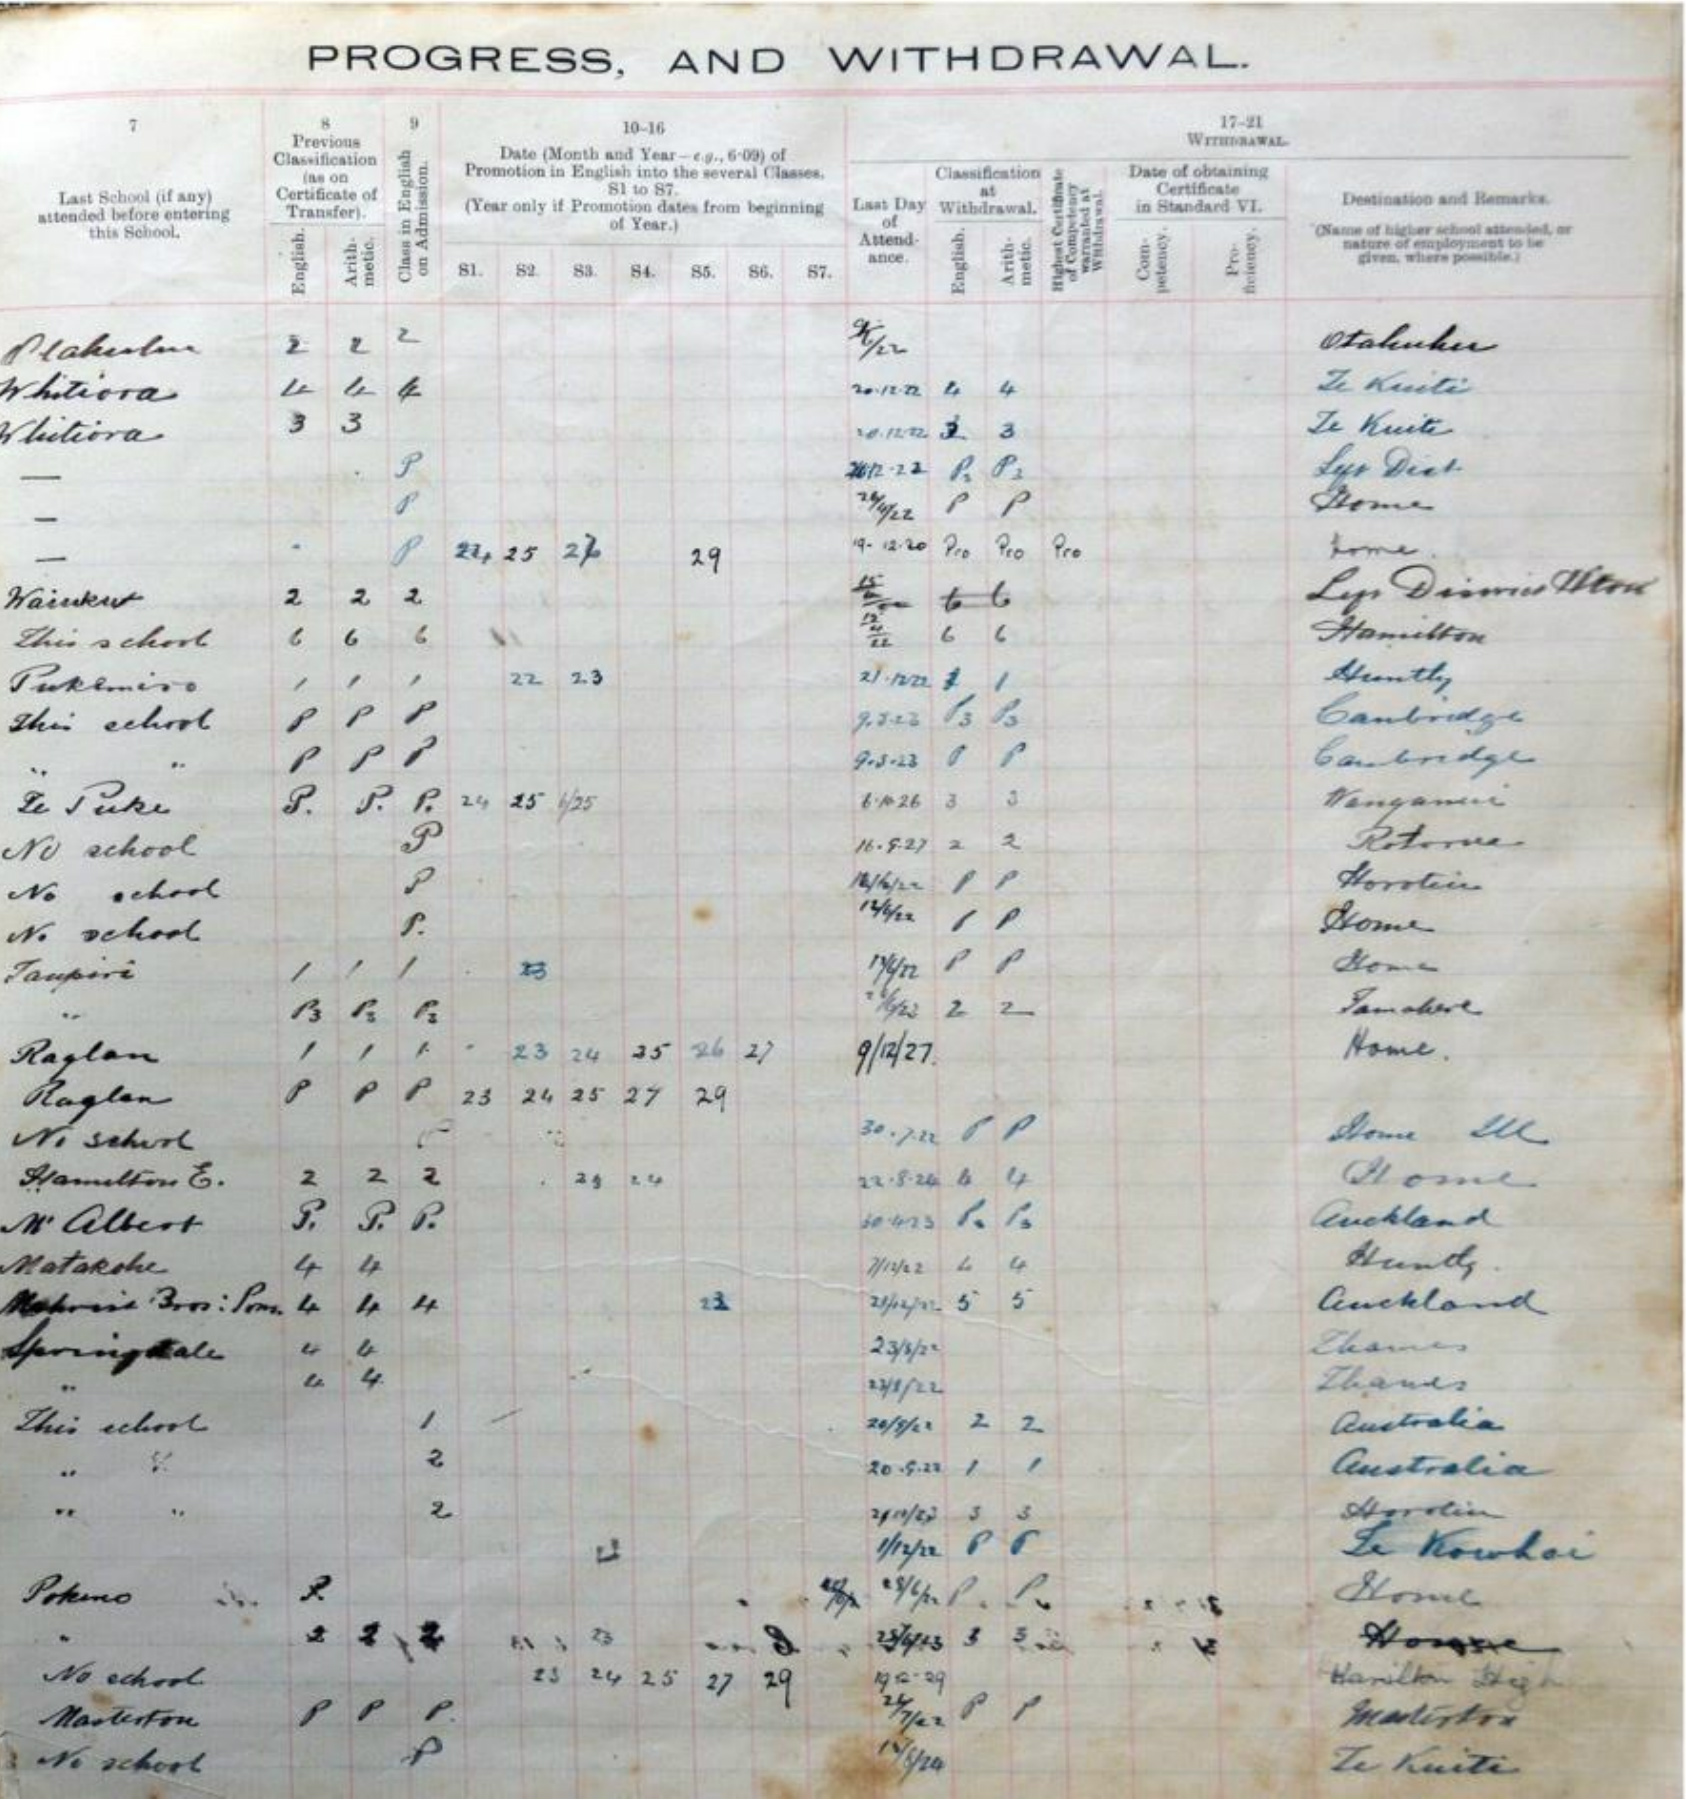 PROGRESS, AND WITHDRAWAL.
7
Last School (if any)
attended before entering
this School.
8
Previous
Classification
(as on
Certificate of
Transfer).
English.
Arith-
metic.
9
Class in English
on Admission.
10-16
Date (Month and Year—e.g., 6·09) of
Promotion in English into the several Classes,
S1 to S7.
(Year only if Promotion dates from beginning
of Year.)
S1. S2. S3. S4. S5. S6. S7.
17-21
WITHDRAWAL.
Last Day
of
Attend-
ance.
Classification
at
Withdrawal.
English.
Arith-
metic.
Highest Certificate
of Competency
warranted at
Withdrawal.
Date of obtaining
Certificate
in Standard VI.
Com-
petency.
Pro-
ficiency.
Destination and Remarks.
(Name of higher school attended, or
nature of employment to be
given, where possible.)
2 2 2 Otahuhu
Whitiora 4 4 4 20·12·22 4 4 Te Kuiti
Whitiora 3 3 20·12·22 3 3 Te Kuiti
— P P3 P3
— P P P Home
— P 24 25 29 Pro Pro Pro Home.
Waiuku 2 2 2 6 6
This school 6 6 6 12/4/22 6 6 Hamilton
Pukemiro 1 1 1 22 23 21·12·22 1 1 Huntly
This school P P P P3 P3 Cambridge
" " P P P 9·3·23 P P Cambridge
Te Puke P. P. P. 24 25 6/25 6·10·26 3 3 Wanganui
No school P 16·9·27 2 2 Rotorua
No school P P P Horotiu
No school P. 12/6/22 P P Home
Taupiri 1 1 1 23 P P Home
" P3 P3 P3 2 2 Tamahere
Raglan 1 1 1 23 24 25 26 27 9/12/27. Home.
Raglan P P P 23 24 25 27 29
No school P 30·7·22 P P Home Ill
Hamilton E. 2 2 2 23 24 22·8·24 4 4 Home
Mt Albert P. P. P. P3 P3 Auckland
Matakohe 4 4 7/12/22 4 4 Huntly.
Bros: Pons. 4 4 4 23 21/12/22 5 5 Auckland
Springdale 4 4 23/8/22 Thames
" 4 4 23/8/22 Thames
This school 1 2 2 Australia
" " 2 20·9·22 1 1 Australia
" " 2 3 3 Horotiu
1/12/22 P P Te Kowhai
Pokeno P. 28/6/22 P. P. Home
" 2 2 2 23 3 3 Home
No school 23 24 25 27 29 Hamilton High
Masterton P P P. P P Masterton
No school P Te Kuiti